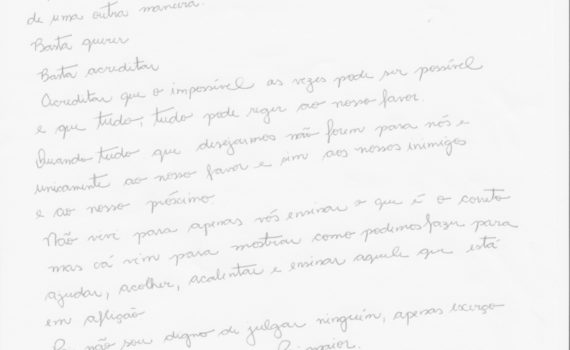 de uma outra maneira.
Basta querer
Basta acreditar
Acreditar que o impossível as vezes pode ser possível
e que tudo, tudo pode reger ao nosso favor.
Quando tudo que desejarmos não forem para nós e
unicamente ao nosso favor e sim aos nossos inimigos
e ao nosso próximo.
Não vive para apenas vós ensinar o que é o correto
mas cá vim para mostrar como podemos fazer para
ajudar, acolher, acalentar e ensinar aquele que está
em aflição
não sou digno de julgar ninguém, apenas exerço
maior.